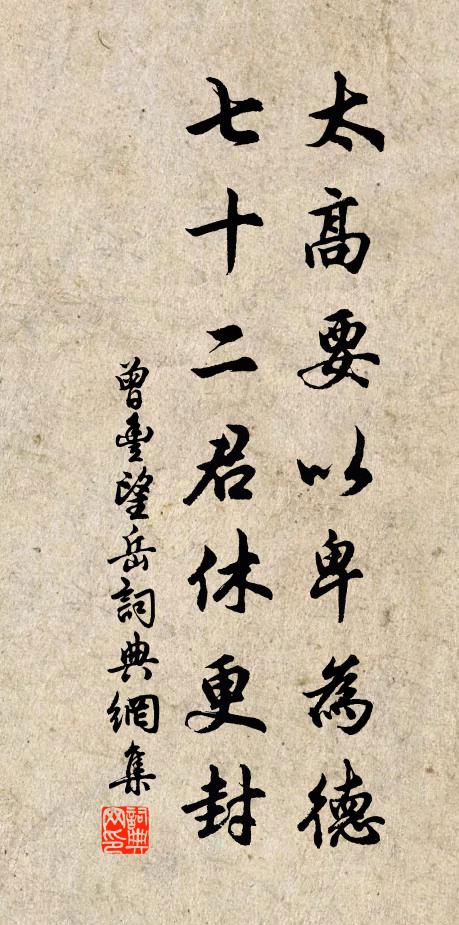 太高要以卑為德
七十二君休更封
曾豐望岳詞典網集
詞典網印